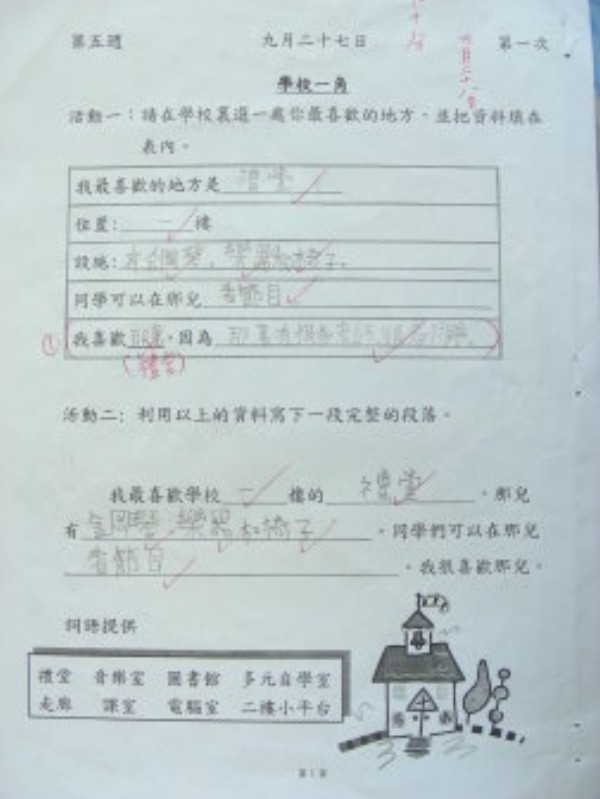 第五週 九月二十七日 第一次
學校一角
活動一：請在學校裏選一處你最喜歡的地方，並把資料填在
表內。
我最喜歡的地方是 禮堂
位置: 一 樓
設施: 有鋼琴、樂器和椅子。
同學可以在那兒 看節目
我喜歡那裏，因為
①
(禮堂)
活動二: 利用以上的資料寫下一段完整的段落。
我最喜歡學校 一 樓的 禮堂 。那兒
有 鋼琴、樂器和椅子 。同學們可以在那兒
看節目 。我很喜歡那兒。
詞語提供
禮堂 音樂室 圖書館 多元自學室
走廊 課室 電腦室 二樓小平台
第1頁